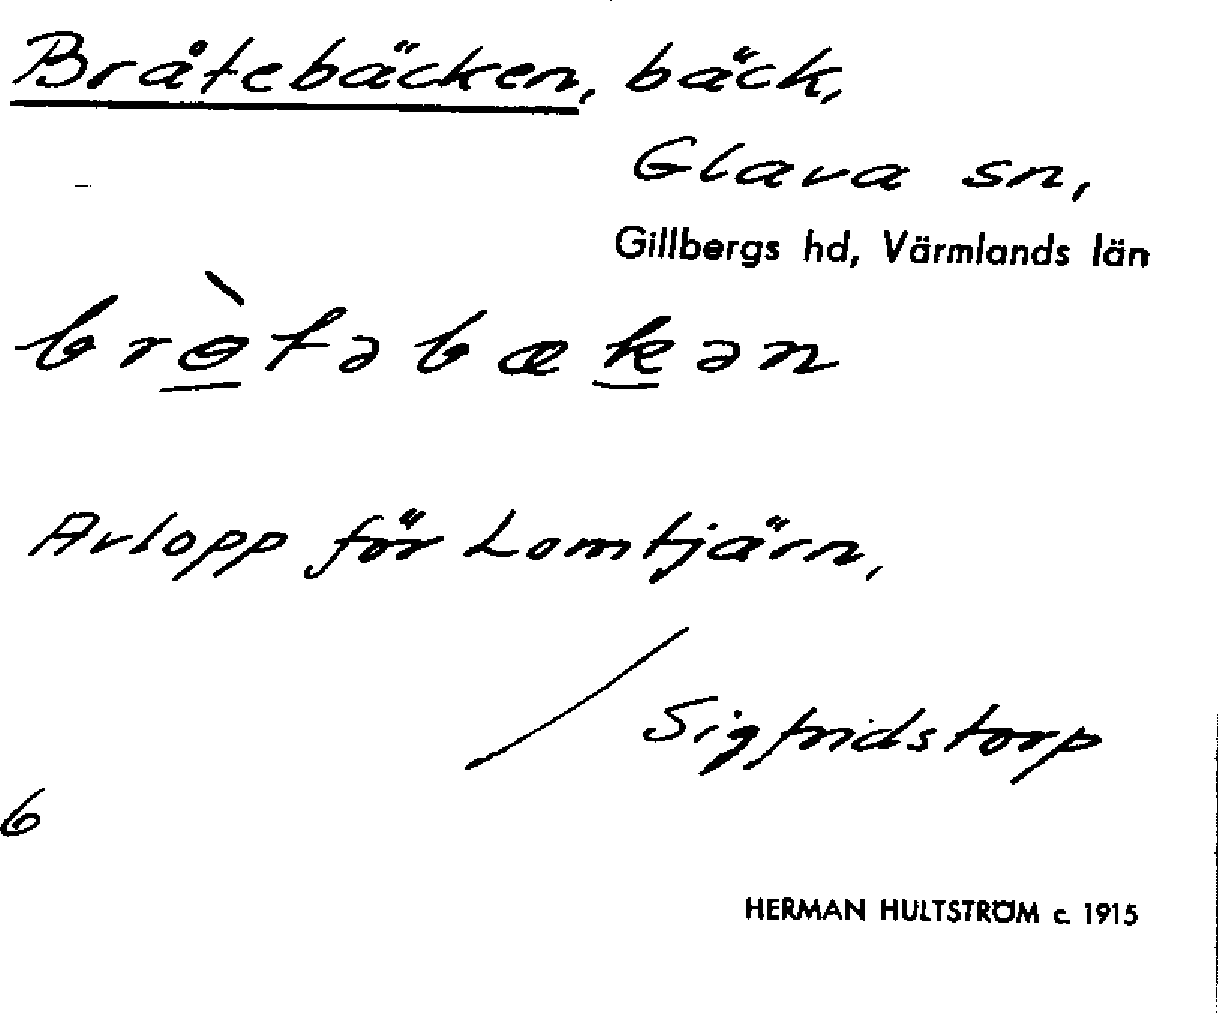 Bråtebäcken, bäck,
Glava sn,
Gillbergs hd, Värmlands län
brɵ̀təbækən
Avlopp för Lomtjärn,
Sigfridstorp
6
HERMAN HULTSTRÖM c. 1915